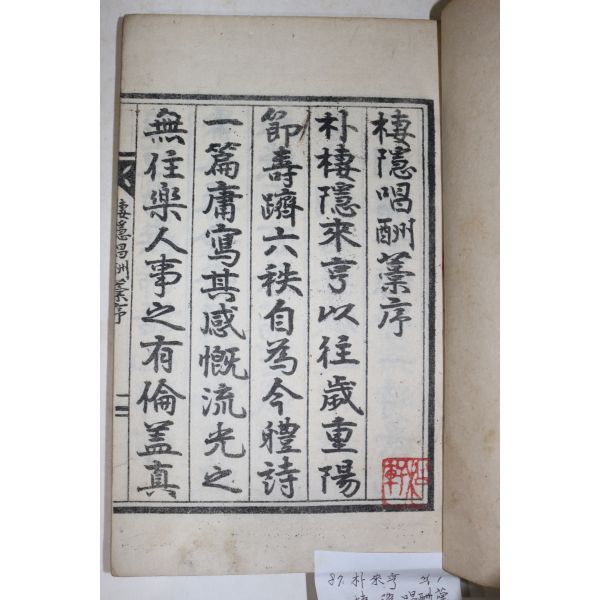 棲隱唱酬藁序
朴棲隱來亨以往歲重陽
節壽躋六秩自為今軆詩
一篇庸寫其感慨流光之
無住樂人事之有倫盖真
棲隱唱酬藁序
87. 朴來亨
棲隱唱酬藁